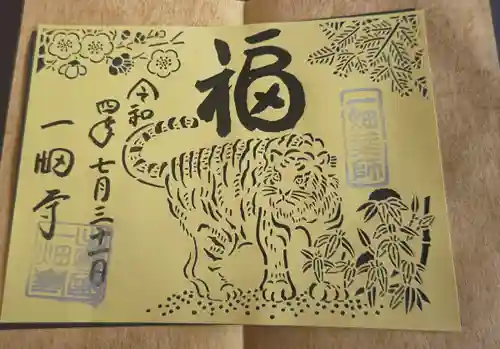 福
令和
四年七月三十一日
一畑寺
一畑薬師